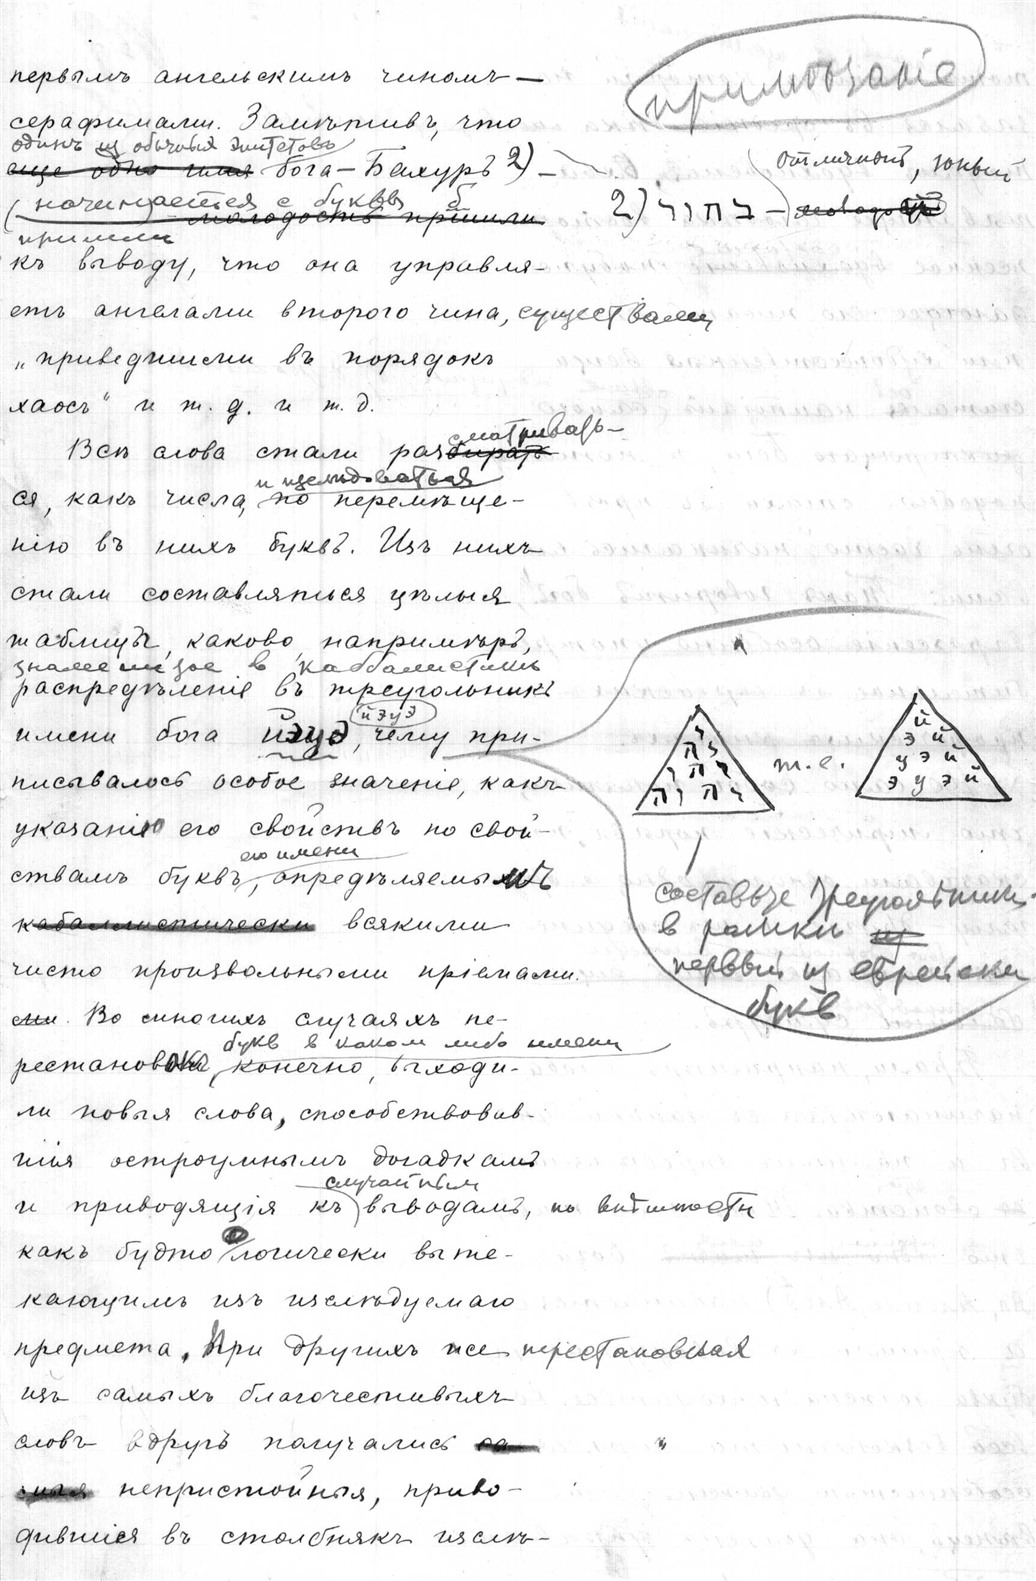 примѣчаніе
первымъ ангельскимъ чиномъ —
серафимами. Замѣтивъ, что
одинъ из обычныя эпитетовъ
еще одно имя бога – Бахуръ 2) –
начинается с буквы б
молодость пришли
пришли
отличный, юный
2) בחור –
къ выводу, что она управля-
етъ ангелами второго чина, существами
„приведшими въ порядокъ
хаосъ“ и т. д. и т. д.
сматривать-
Всѣ слова стали разбирать
и изслѣдоваться
ся, какъ числа, по перемѣще-
нію въ нихъ буквъ. Изъ нихъ
стали составляться цѣлыя
таблицы, каково, напримѣръ,
знаменитое в каббалистикѣ
распредѣленіе въ треугольникѣ
йэуэ
имени бога йэуэ, чему при-
писывалось особое значеніе, какъ
указанію его свойствъ по свой-
его имени
ствамъ буквъ, опредѣляемымъ
кабаллистически всякими
чисто произвольными пріемами.
ми. Во многихъ случаяхъ пе-
букв в каком либо имени
рестановки, конечно, выходи-
ли новыя слова, способствовав-
шія остроумнымъ догадкамъ
случайным
и приводящія къ выводамъ, по видимости
какъ будто логически выте-
кающимъ изъ изслѣдуемаго
предмета. При другихъ же перестановках
изъ самыхъ благочестивыхъ
словъ вдругъ получались са
мыя непристойныя, приво-
дившіся въ столбнякъ изслѣ-
י
ה י
ו ה י
ה ו ה י
т. е.
й
э й
у э й
э у э й
составьте треугольники
в рамки
первый из еврейски
букв